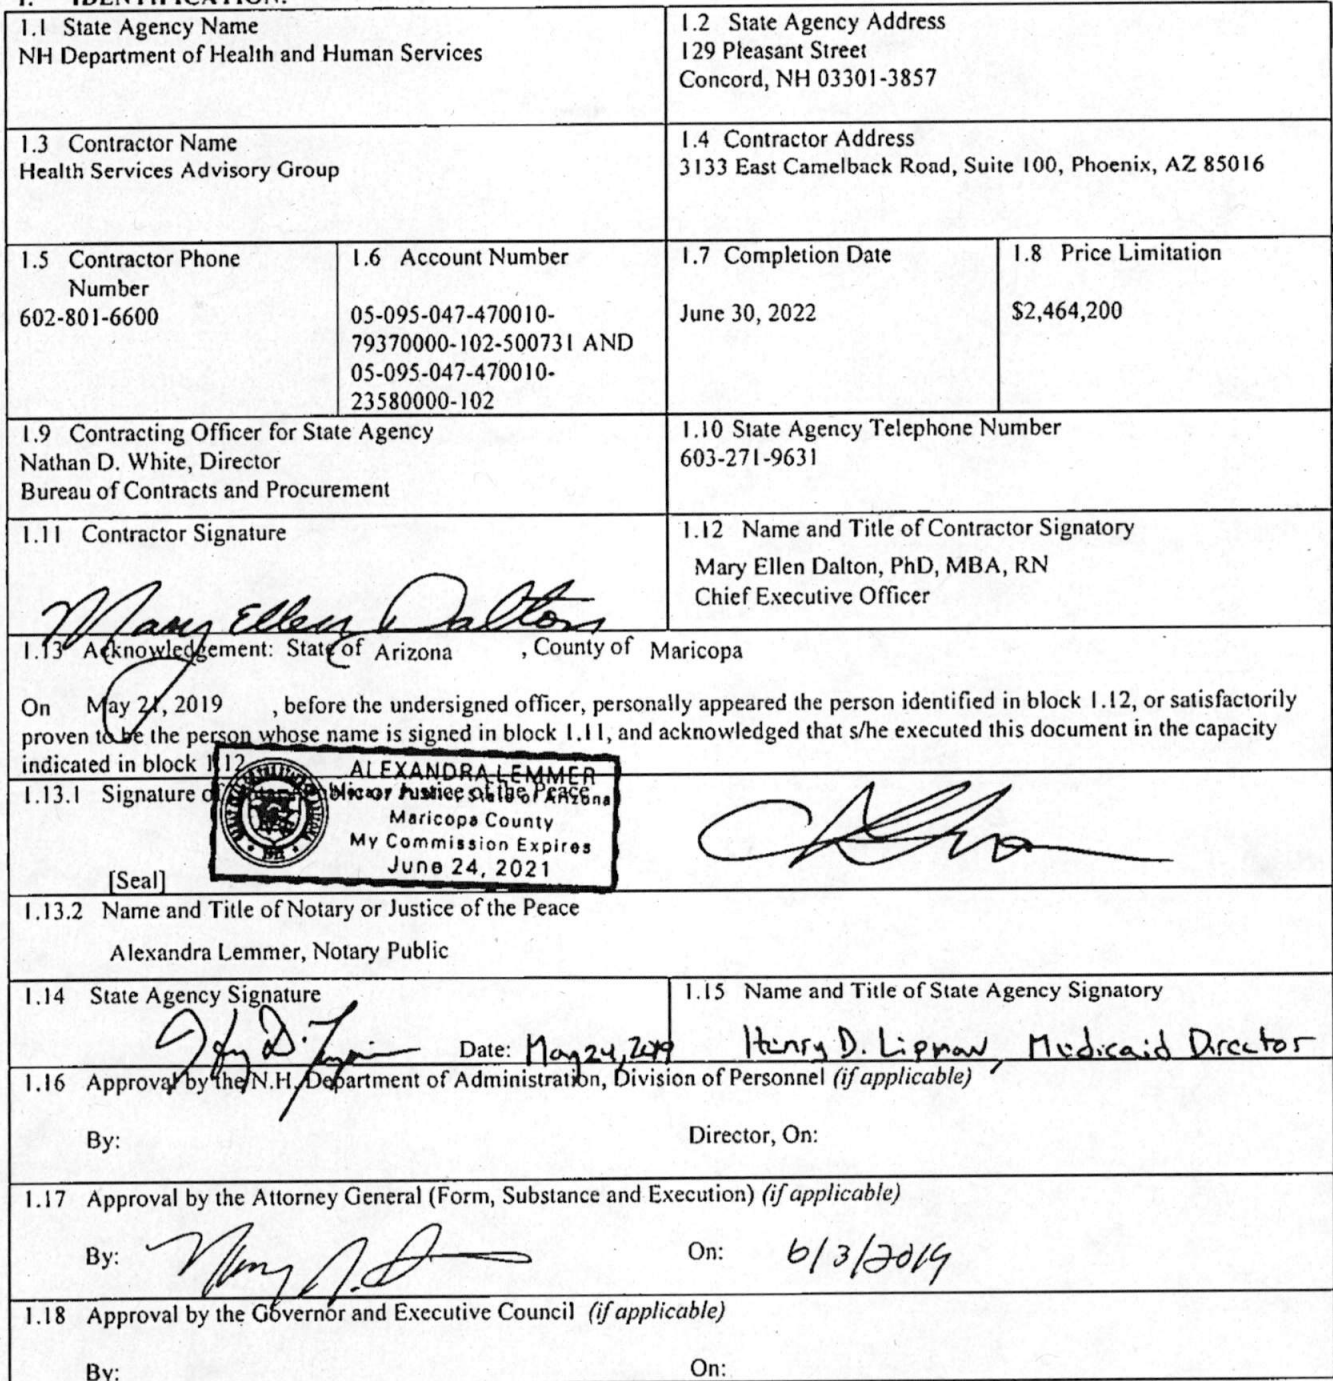 I. IDENTIFICATION.
1.1 State Agency Name
NH Department of Health and Human Services
1.2 State Agency Address
129 Pleasant Street
Concord, NH 03301-3857
1.3 Contractor Name
Health Services Advisory Group
1.4 Contractor Address
3133 East Camelback Road, Suite 100, Phoenix, AZ 85016
1.5 Contractor Phone
Number
602-801-6600
1.6 Account Number
05-095-047-470010-
79370000-102-500731 AND
05-095-047-470010-
23580000-102
1.7 Completion Date
June 30, 2022
1.8 Price Limitation
$2,464,200
1.9 Contracting Officer for State Agency
Nathan D. White, Director
Bureau of Contracts and Procurement
1.10 State Agency Telephone Number
603-271-9631
1.11 Contractor Signature
Mary Ellen Dalton
1.12 Name and Title of Contractor Signatory
Mary Ellen Dalton, PhD, MBA, RN
Chief Executive Officer
1.13 Acknowledgement: State of Arizona , County of Maricopa
On May 21, 2019 , before the undersigned officer, personally appeared the person identified in block 1.12, or satisfactorily
proven to be the person whose name is signed in block 1.11, and acknowledged that s/he executed this document in the capacity
indicated in block 1.12
1.13.1 Signature of Public or Justice of the Peace
ALEXANDRA LEMMER
State of Arizona
Maricopa County
My Commission Expires
June 24, 2021
[Seal]
1.13.2 Name and Title of Notary or Justice of the Peace
Alexandra Lemmer, Notary Public
1.14 State Agency Signature
Date: May 24, 2019
1.15 Name and Title of State Agency Signatory
Henry D. Lipman, Medicaid Director
1.16 Approval by the N.H. Department of Administration, Division of Personnel (if applicable)
By: Director, On:
1.17 Approval by the Attorney General (Form, Substance and Execution) (if applicable)
By: On: 6/3/2019
1.18 Approval by the Governor and Executive Council (if applicable)
By: On: